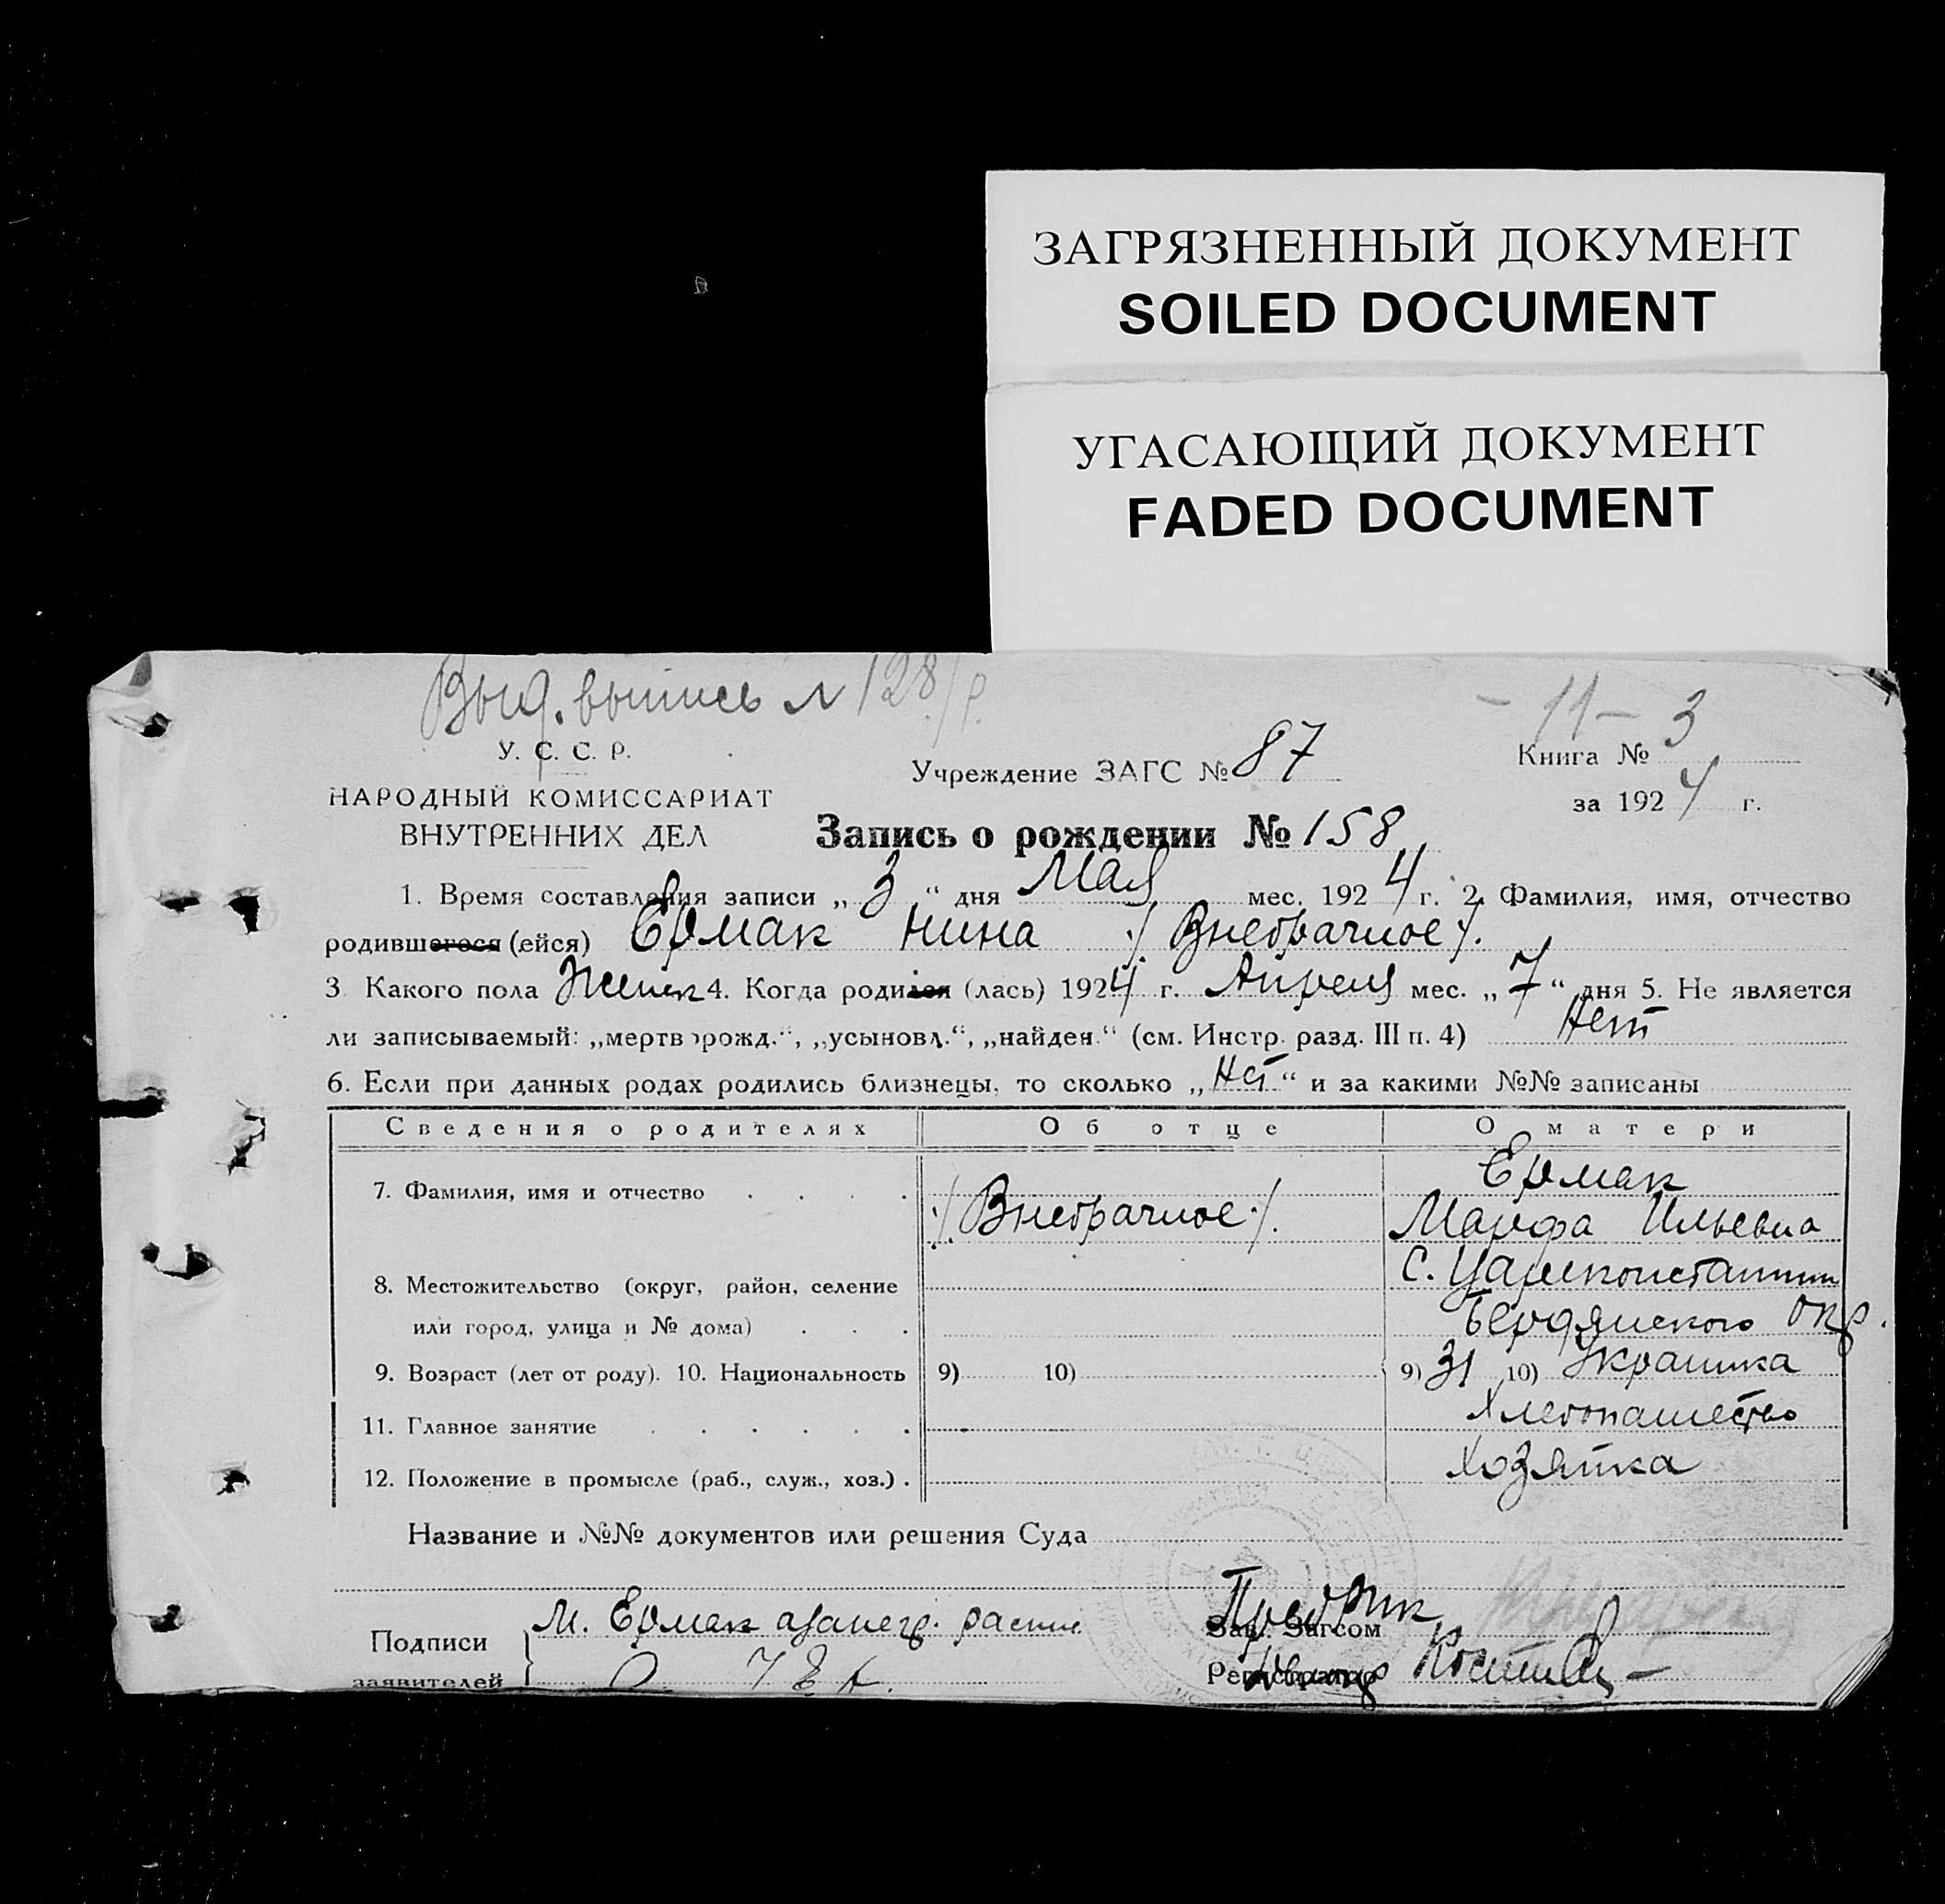 ЗАГРЯЗНЕННЫЙ ДОКУМЕНТ
SOILED DOCUMENT
УГАСАЮЩИЙ ДОКУМЕНТ
FADED DOCUMENT
Выд. выпись № 128/р.
- 11 -
У. С. С. Р.
НАРОДНЫЙ КОМИССАРИАТ
ВНУТРЕННИХ ДЕЛ
Учреждение ЗАГС № 87
Книга № 3
за 1924 г.
Запись о рождении № 158
1. Время составления записи „ 3 “ дня Мая мес. 1924 г. 2. Фамилия, имя, отчество
родившегося (ейся) Ермак Нина ./ Внебрачное /.
3 Какого пола Женск 4. Когда родился (лась) 1924 г. Апреля мес. „ 7 “ дня 5. Не является
ли записываемый: „мертворожд.“, „усыновл.“, „найден.“ (см. Инстр. разд. III п. 4) Нет
6. Если при данных родах родились близнецы, то сколько „ Нет “ и за какими №№ записаны
Сведения о родителях Об отце О матери
7. Фамилия, имя и отчество ./ Внебрачное ./. Ермак
Марфа Ильевна
8. Местожительство (округ, район, селение с. Цареконстантин
или город, улица и № дома) Бердянского окр.
9. Возраст (лет от роду). 10. Национальность 9) 10) 9) 31 10) Украинка
11. Главное занятие Хлебопашество
12. Положение в промысле (раб., служ., хоз.) . Хозяйка
Название и №№ документов или решения Суда
Подписи М. Ермак
заявителей
Зав. Загсом
Регистратор